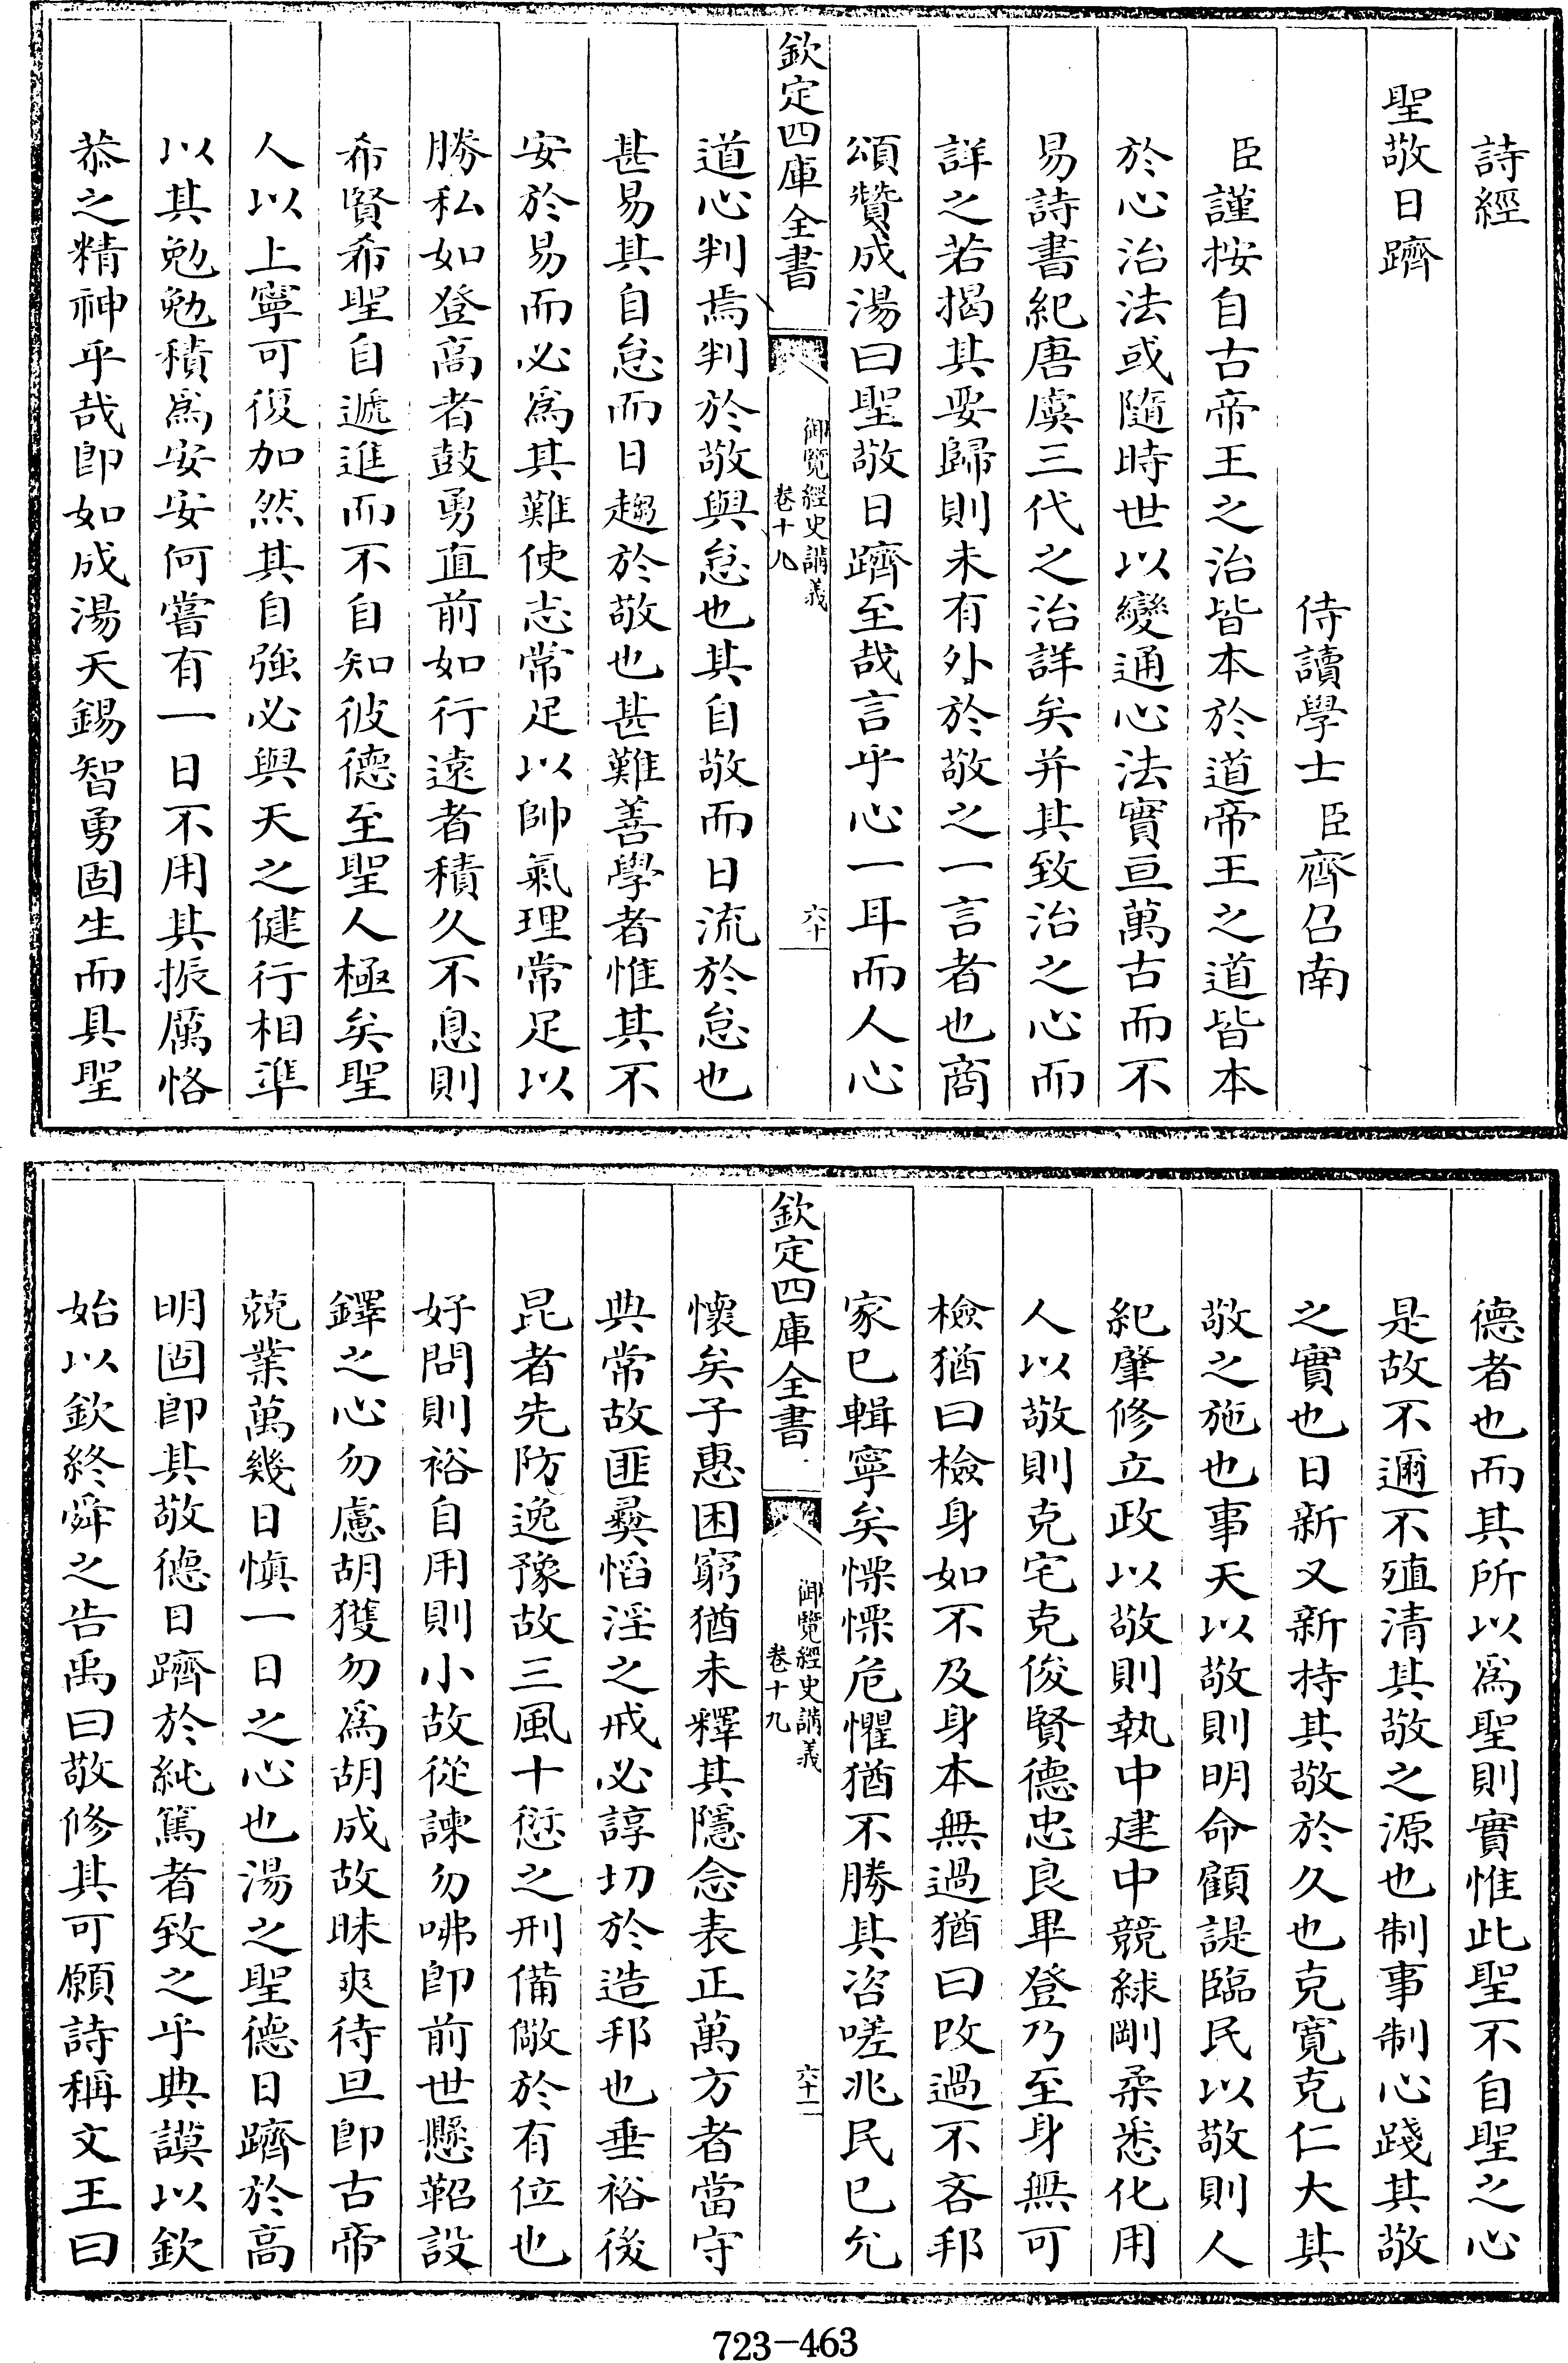 詩經
聖敬日躋
侍讀學士臣齊召南
臣謹按自古帝王之治皆本於道帝王之道皆本
於心治法或隨時世以變通心法實亘萬古而不
易詩書紀唐虞三代之治詳矣并其致治之心而
詳之若揭其要歸則未有外於敬之一言者也商
頌贊成湯曰聖敬日躋至哉言乎心一耳而人心
欽定四庫全書
御覽經史講義
卷十九
六十
道心判焉判於敬與怠也其自敬而日流於怠也
甚易其自怠而日趨於敬也甚難善學者惟其不
安於易而必為其難使志常足以帥氣理常足以
勝私如登高者鼓勇直前如行遠者積久不息則
希賢希聖自遞進而不自知彼德至聖人極矣聖
人以上寧可復加然其自強必與天之健行相準
以其勉勉積為安安何嘗有一日不用其振厲恪
恭之精神乎哉即如成湯天錫智勇固生而具聖
德者也而其所以為聖則實惟此聖不自聖之心
是故不邇不殖清其敬之源也制事制心踐其敬
之實也日新又新持其敬於久也克寬克仁大其
敬之施也事天以敬則明命顧諟臨民以敬則人
紀肇修立政以敬則執中建中競絿剛柔悉化用
人以敬則克宅克俊賢德忠良畢登乃至身無可
檢猶曰檢身如不及身本無過猶曰改過不吝邦
家已輯寧矣慄慄危懼猶不勝其咨嗟兆民已允
欽定四庫全書
御覽經史講義
卷十九
六十一
懷矣子惠困窮猶未釋其隱念表正萬方者當守
典常故匪彝慆淫之戒必諄切於造邦也垂裕後
昆者先防逸豫故三風十愆之刑備儆於有位也
好問則裕自用則小故從諫勿咈即前世懸鞀設
鐸之心勿慮胡獲勿為胡成故昧爽待旦即古帝
兢業萬幾日慎一日之心也湯之聖德日躋於高
明固即其敬德日躋於純篤者致之乎典謨以欽
始以欽終舜之告禹曰敬修其可願詩稱文王曰
723-463